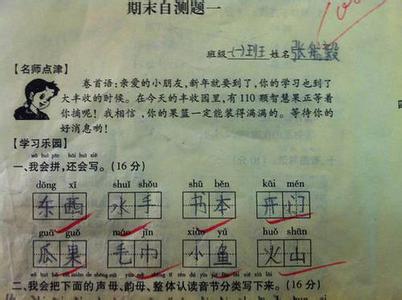 期末自测题一
班级(一)班 姓名张
【名师点津】
卷首语:亲爱的小朋友,新年就要到了,你的学习也到了
大丰收的时候。在今天的丰收园里,有110颗智慧果正等着
你摘呢!我相信,你的果篮一定能装得满满的。等待你的
好消息哟!
【学习乐园】
一、我会拼,还会写。(16分)
dōng xī shuǐ shǒu shū běn kāi mén
东西 水手 书本 开门
guā guǒ máo jīn xiǎo yú huǒ shān
瓜果 毛巾 小鱼 火山
二、我会把下面的声母、韵母、整体认读音节分类写下来。(16分)